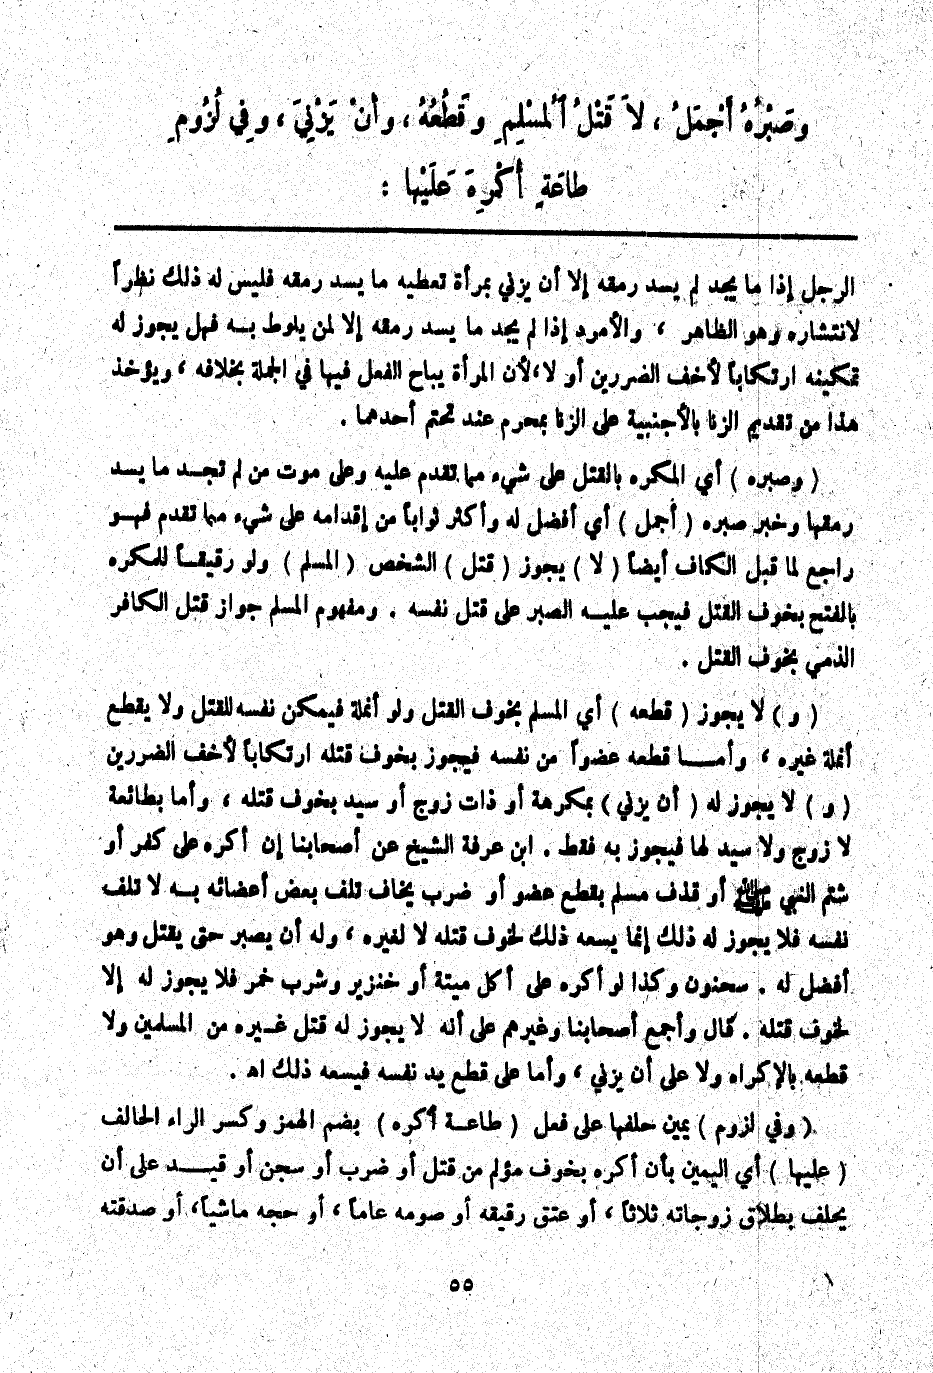 وَصَبْرُهُ أَجْمَلُ ، لاَ قَتْلُ ٱلْمُسْلِمِ وَقَطْعُهُ ، وأنْ يَزْنِيَ ، وفِي لُزُومِ
طاعَةٍ أُكْرِهَ عَلَيْها :
الرجل إذا ما يجد لم يسد رمقه إلا أن يزني بمرأة تعطيه ما يسد رمقه فليس له ذلك نظراً
لانتشاره وهو الظاهر ، والأمرد إذا لم يجد ما يسد رمقه إلا لمن يلوط بــه فهل يجوز له
تمكينه ارتكاباً لأخف الضررين أو لا،لأن المرأة يباح الفعل فيها في الجملة بخلافه ، ويؤخذ
هذا من تقديم الزنا بالأجنبية على الزنا بمحرم عند تحتم أحدهما .
( وصبره ) أي المكره بالقتل على شيء مما تقدم عليه وعلى موت من لم تجــد ما يسد
رمقها وخبر صبره ( أجمل ) أي أفضل له وأكثر ثواباً من إقدامه على شيء مما تقدم فهــو
راجع لما قبل الكاف أيضاً ( لا ) يجوز ( قتل ) الشخص ( المسلم ) ولو رقيقــاً للمكره
بالفتح بخوف القتل فيجب عليــه الصبر على قتل نفسه . ومفهوم المسلم جواز قتل الكافر
الذمي بخوف القتل .
( و ) لا يجوز ( قطعه ) أي المسلم بخوف القتل ولو أنملة فيمكن نفسه للقتل ولا يقطع
أنملة غيره ، وأمــــا قطعه عضواً من نفسه فيجوز بخوف قتله ارتكاباً لأخف الضررين
( و ) لا يجوز له ( أن يزني ) بمكرهة أو ذات زوج أو سيد بخوف قتله ، وأما بطائعة
لا زوج ولا سيد لها فيجوز به فقط . ابن عرفة الشيخ عن أصحابنا إن أكره على كفر أو
شتم النبي ﷺ أو قذف مسلم بقطع عضو أو ضرب يخاف تلف بعض أعضائه بــه لا تلف
نفسه فلا يجوز له ذلك إنما يسعه ذلك لخوف قتله لا لغيره ، وله أن يصبر حتى يقتل وهو
أفضل له . سحنون وكذا لو أكره على أكل ميتة أو خنزير وشرب خمر فلا يجوز له إلا
لخوف قتله . قال وأجمع أصحابنا وغيرهم على أنه لا يجوز له قتل غــيره من المسلمين ولا
قطعه بالإكراه ولا على أن يزني ، وأما على قطع يد نفسه فيسعه ذلك اهـ .
( وفي لزوم ) يمين حلفها على فعل ( طاعــة أكره ) بضم الهمز وكسر الراء الحالف
( عليها ) أي اليمين بأن أكره بخوف مؤلم من قتل أو ضرب أو سجن أو قيــــد على أن
يحلف بطلاق زوجاته ثلاثاً ، أو عتق رقيقه أو صومه عاماً ، أو حجه ماشياً، أو صدقته
٥٥